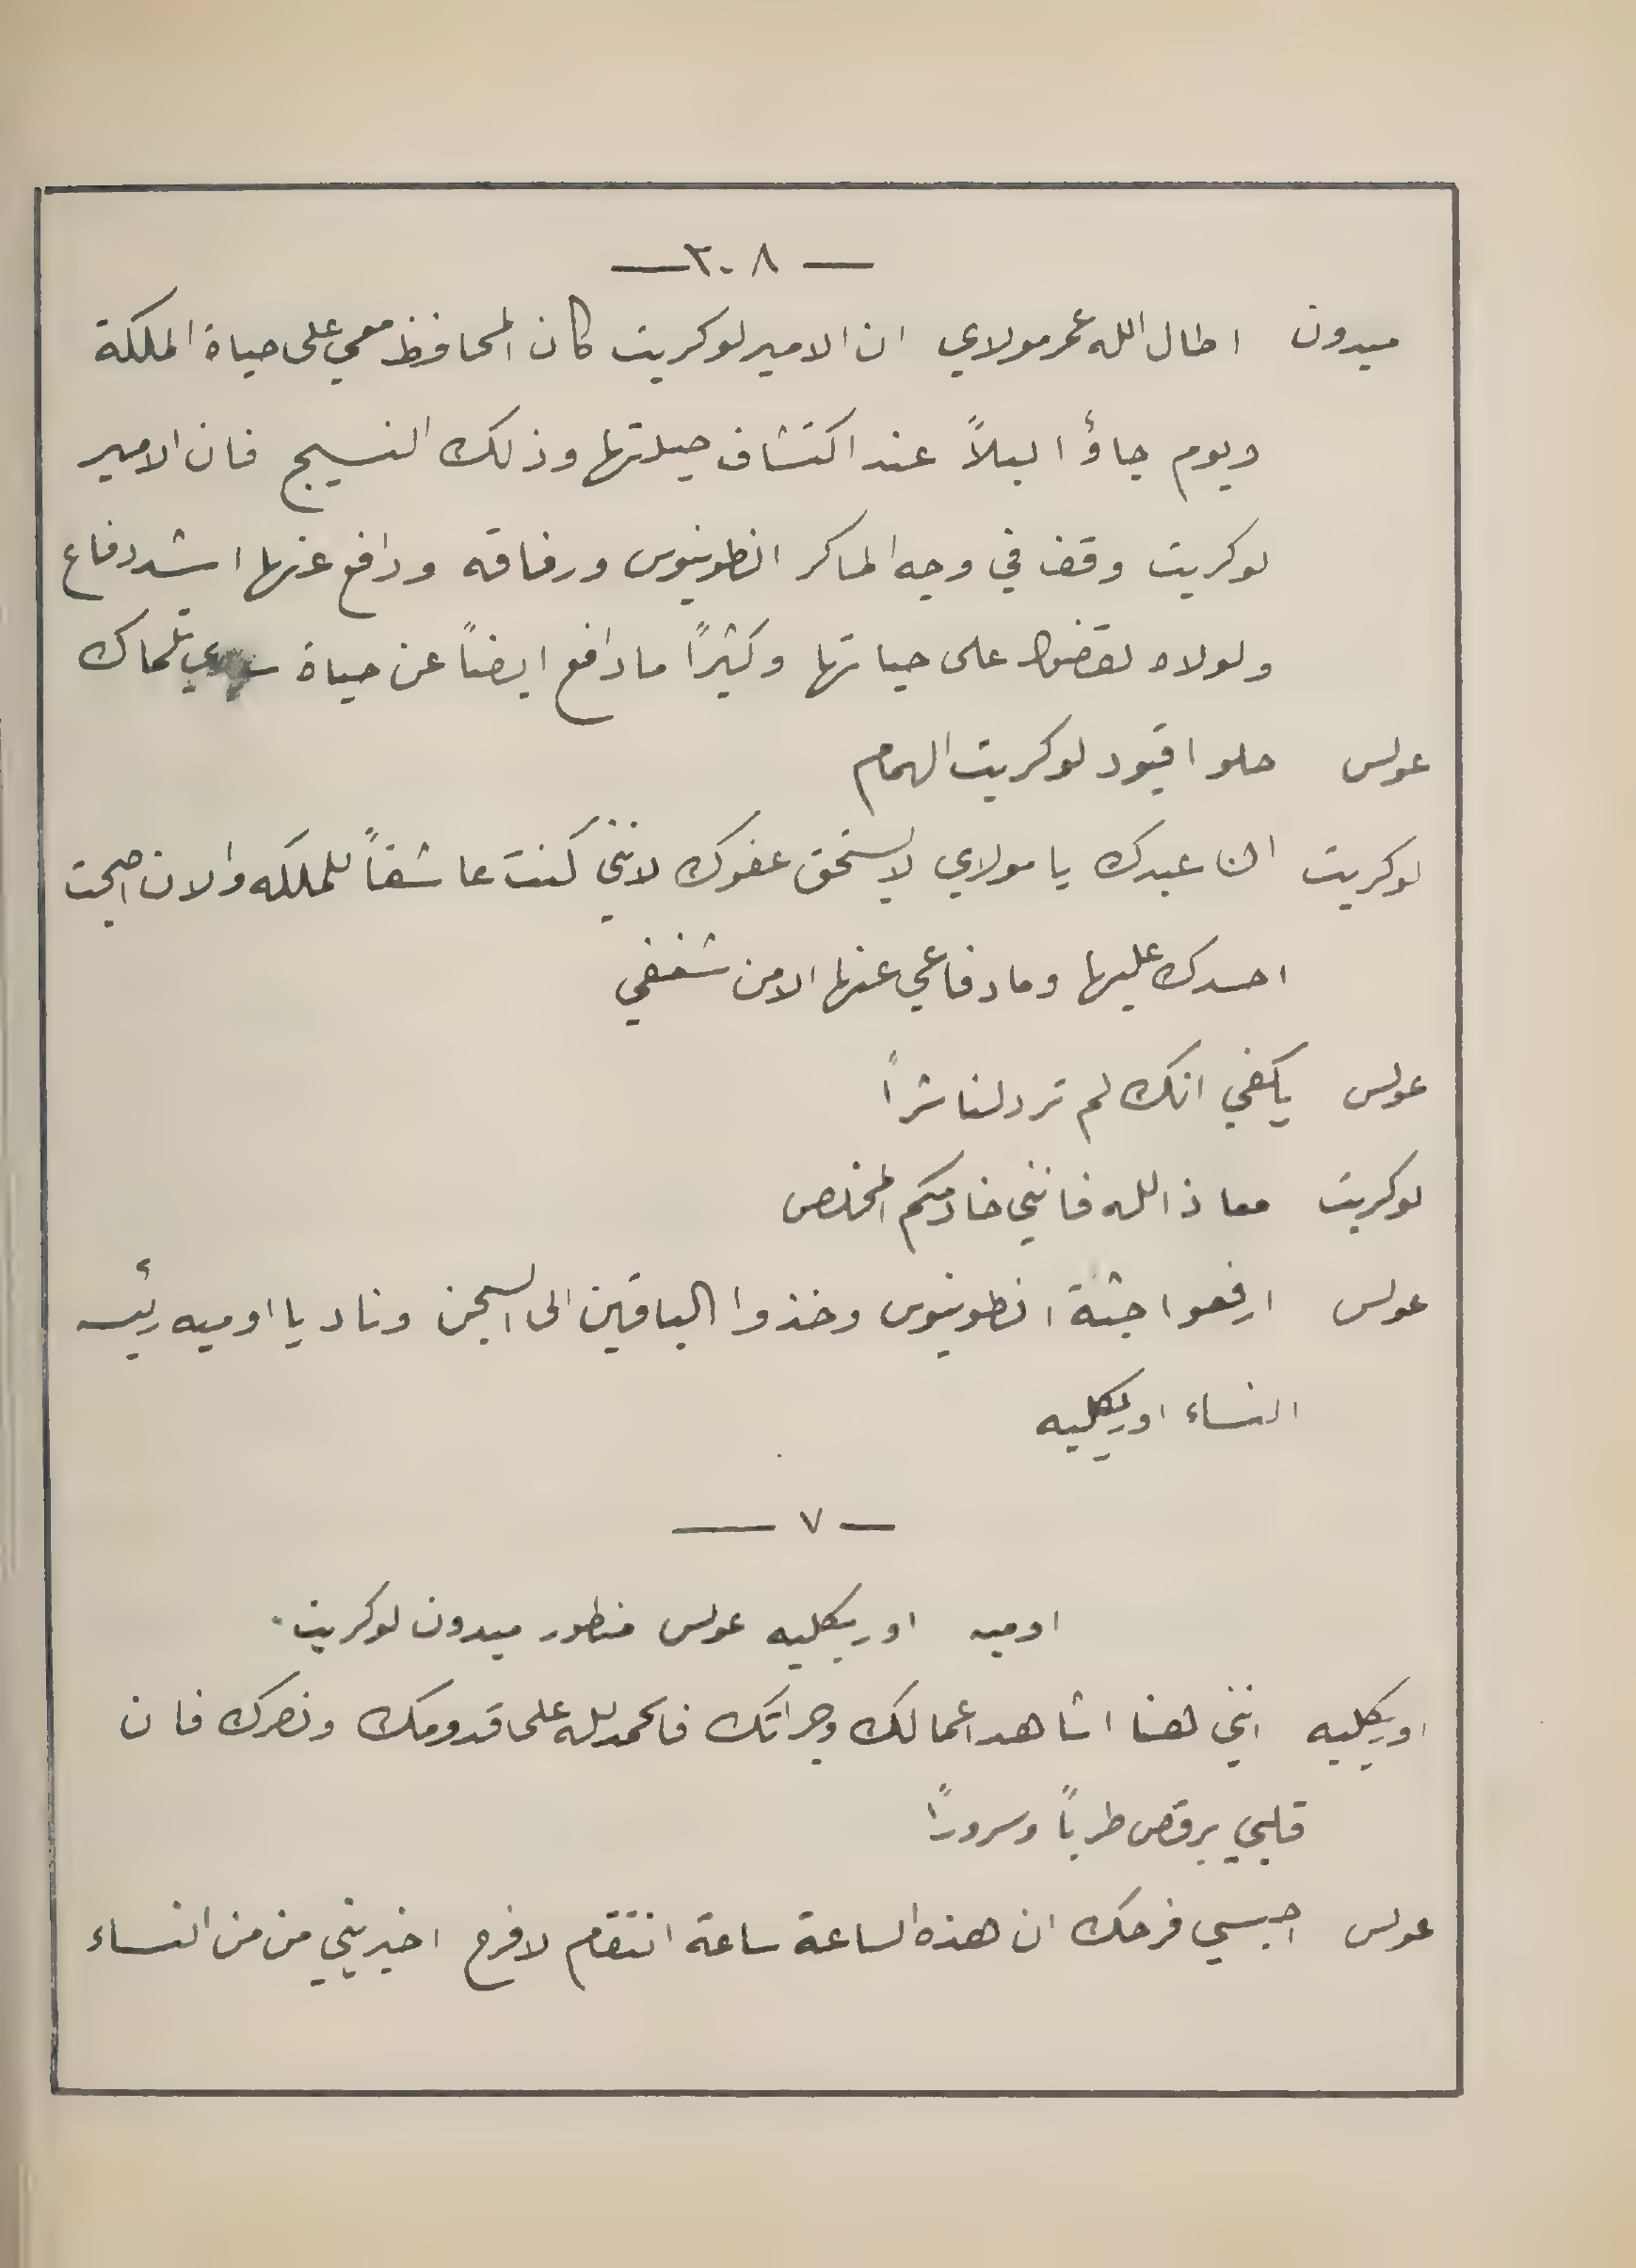 — ٢٠٨ —
ميدون اطال الله عمر مولاي ان الامير لوكريت كان المحافظ معي على حياة الملكة
ويوم جاؤا ليلاً عند اكتشاف حيلتها وذلك النسيج فان الامير
لوكريت وقف في وجه الماكر انطونيوس ورفاقه ودافع عنها اشد دفاع
ولولاه لقضوا على حياتها وكثيرًا ما دافع ايضاً عن حياة سيدي تلماك
عولس حلوا قيود لوكريت الهمام
لوكريت انا عبدك يا مولاي لا يستحق عفوك لانني كنت عاشقاً للملكه والان اصبحت
احسدك عليها وما دفاعي عنها الا من شغفي
عولس يكفي انك لم ترد لنا شراً
لوكريت معاذ الله فانني خادمكم المخلص
عولس ارفعوا جثة انطونيوس وخذوا الباقين الى السجن وناد يا اوميه رئيسه
النساء اوريكليه
— ٧ —
اوميه اوريكليه عولس منطور ميدون لوكريت.
اوريكليه انني هنا اشاهد اعمالك وجراتك فالحمد لله على قدومك ونصرك فان
قلبي يرقص طرباً وسرورًا
عولس احبسي فرحك ان هذه الساعة ساعة انتقام لا فرح اخبريني من من النساء